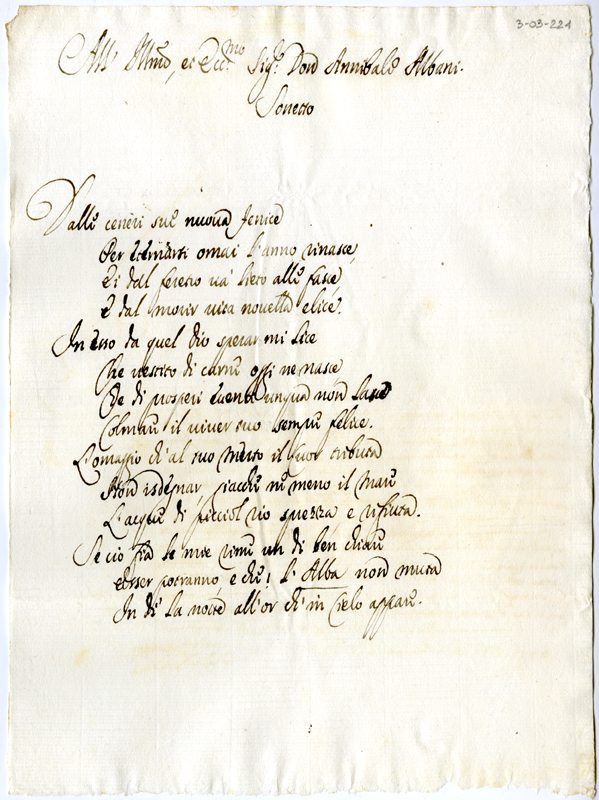 3-03-221
All' Illmo, et Ecc.mo Sig.r Don Annibale Albani.
Sonetto
Dalle ceneri sue nuova fenice
Per omai l'anno rinasce,
Ei dal feretro va' lieto alle fasce,
E dal morir vita novella elice.
In esso da quel Dio sperar mi lice
Che vestito di carne oggi ne nasce
Che di prosperi eventi unqua non lasce
Colmare il viver suo sempre felice.
L'omaggio ch'al suo merto il cuor tributa
Non isdegnar, giacche ne meno il mare
L'acque di picciol rio sprezza e rifiuta.
Se cio fia le mie rime un di ben chiare
Esser potranno e che! l'Alba non muta
In di' la notte all'or ch'in Cielo appare.